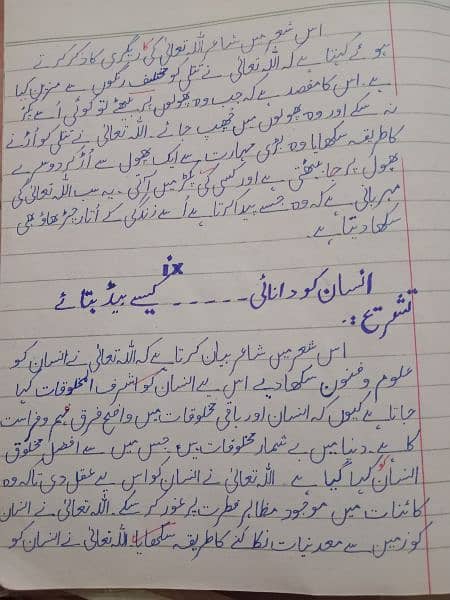 اس شعر میں شاعر اللہ تعالیٰ کی کاریگری کا ذکر کرتے
ہوئے کہتا ہے کہ اللہ تعالیٰ نے تتلی کو مختلف رنگوں سے مزین کیا
ہے۔ اس کا مقصد ہے کہ جب وہ پھولوں پر بیٹھے تو کوئی اُسے پکڑ
نہ سکے اور وہ پھولوں میں چھپ جائے۔ اللہ تعالیٰ نے تتلی کو اُڑنے
کا طریقہ سکھایا وہ بڑی مہارت سے ایک پھول سے اُڑ کر دوسرے
پھول پر جا بیٹھتی ہے اور کسی کی پکڑ میں نہیں آتی۔ یہ سب اللہ تعالیٰ کی
مہربانی ہے کہ وہ جسے پیدا کرتا ہے اُسے زندگی کے اُتار چڑھاؤ بھی
سکھا دیتا ہے۔
ix
انسان کو دانائی ۔۔۔۔۔ کیسے ہیڈ بتائے
تشریح:۔
اس شعر میں شاعر بیان کرتا ہے کہ اللہ تعالیٰ نے انسان کو
علوم و فنون سکھا دیے اس لیے انسان کو اشرف المخلوقات کہا
جاتا ہے کیوں کہ انسان اور باقی مخلوقات میں واضح فرق فہم و فراست
کا ہے۔ دنیا میں بے شمار مخلوقات ہیں جس میں سے افضل مخلوق
انسان کو کہا گیا ہے۔ اللہ تعالیٰ نے انسان کو اس لیے عقل دی تاکہ وہ
کائنات میں موجود مظاہر فطرت پر غور کر سکے۔ اللہ تعالیٰ نے انسان
کو زمین سے معدنیات نکالنے کا طریقہ سکھایا اللہ تعالیٰ نے انسان کو